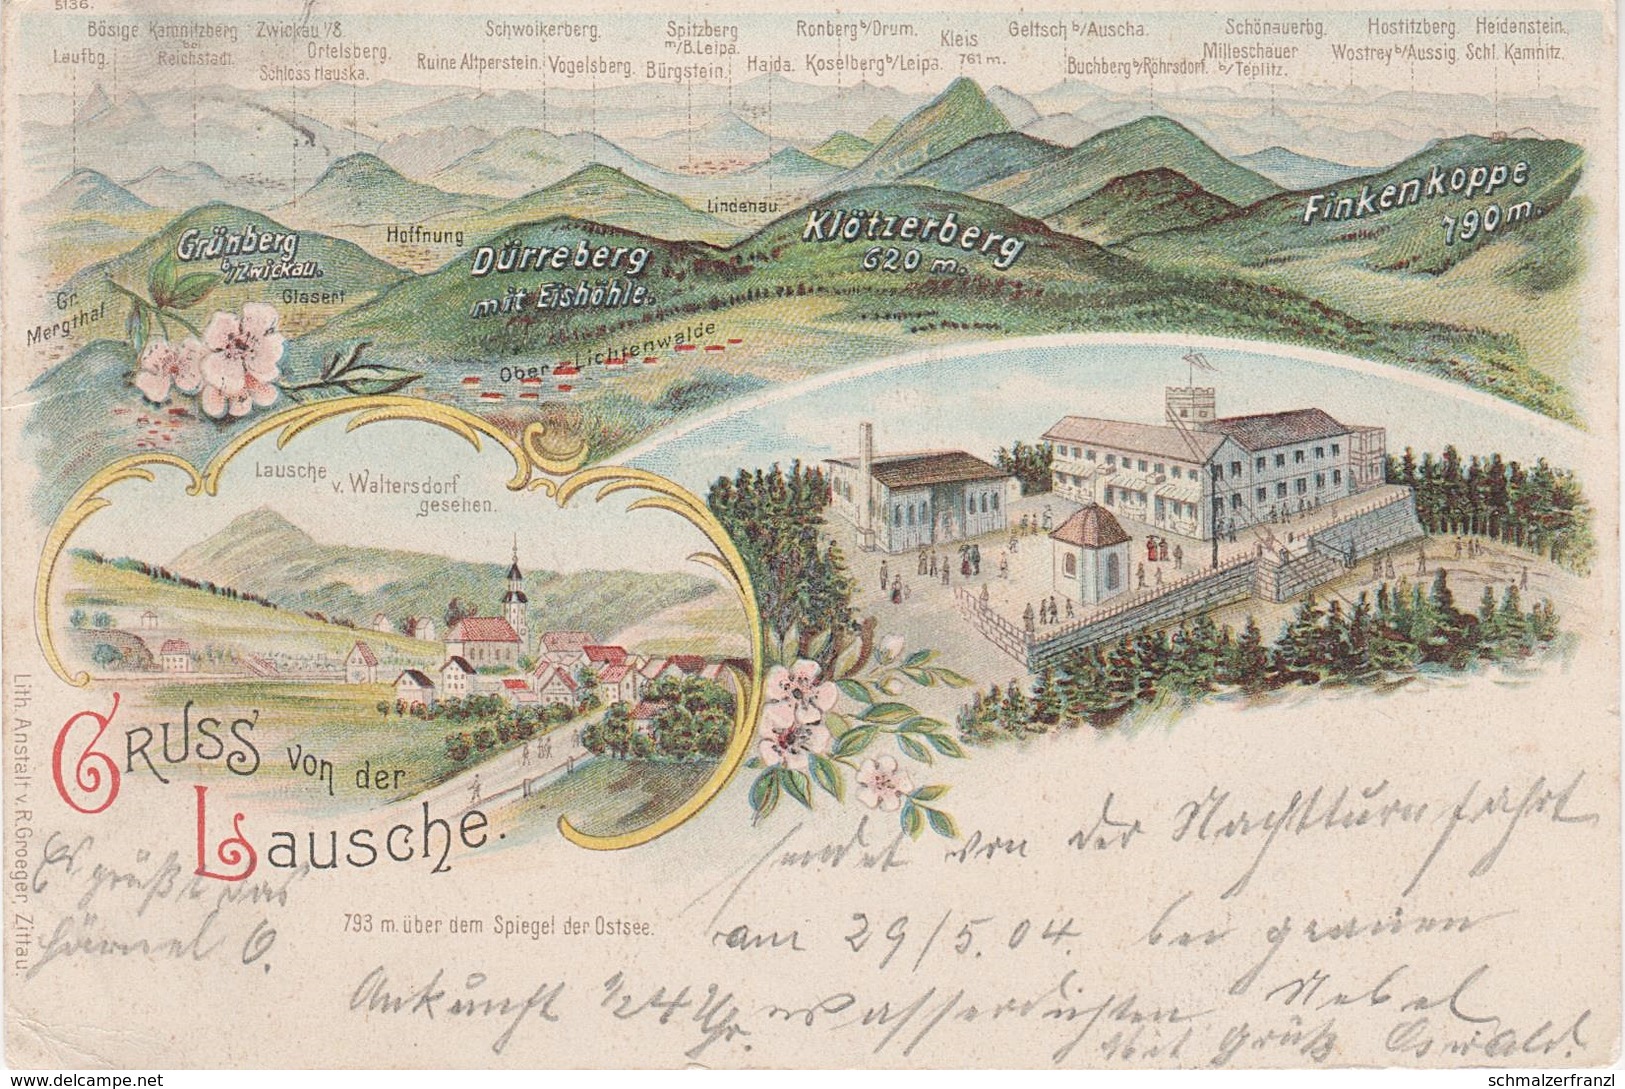 5136.
Bösige Kamnitzberg Zwickau i/B. Schwoikerberg. Spitzberg Ronberg b/Drum. Geltsch b/Auscha. Schönauerbg. Hostitzberg. Heidenstein.
Laufbg. bei Reichstadt. Ortelsberg. Ruine Altperstein. Vogelsberg. m/B.Leipa. Kleis Milleschauer Wostrey b/Aussig. Schl. Kamnitz.
Schloss Hauska. Bürgstein. Haida. Koselberg b/Leipa. 761 m. Buchberg b/Röhrsdorf. b/Teplitz.
Finkenkoppe
790 m.
Lindenau
Klötzerberg
620 m.
Grünberg
b/Zwickau.
Hoffnung
Dürreberg
mit Eishöhle.
Glasert
Gr. Mergthal
Ober-Lichtenwalde
Lausche
v. Waltersdorf
gesehen.
Gruss von der
Lausche.
793 m. über dem Spiegel der Ostsee.
Lith. Anstalt v. R. Groeger, Zittau.
Es grüßt das
sendet von der Nachtturnfahrt
am 29/5.04. bei grauen
Ankunft 1/2 4 Uhr. wasserdichten Nebel
Mit Gruß Oswald.
www.delcampe.net
schmalzerfranzl